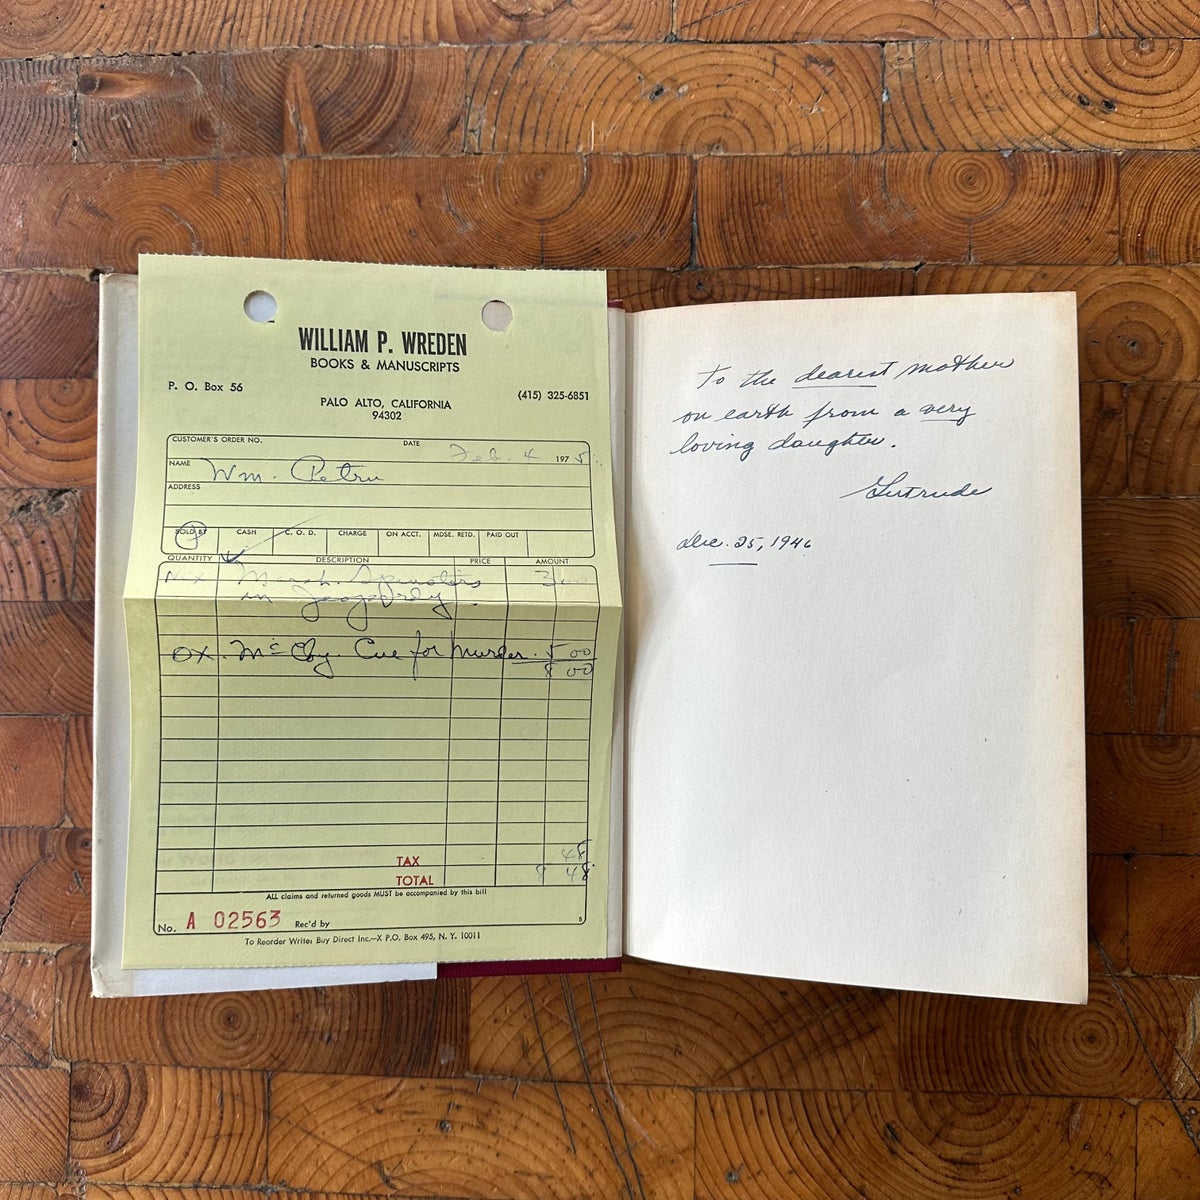 WILLIAM P. WREDEN
BOOKS & MANUSCRIPTS
P. O. Box 56
(415) 325-6851
PALO ALTO, CALIFORNIA
94302
CUSTOMER'S ORDER NO.
DATE
Feb. 4 1975
NAME
Wm. Petru
ADDRESS
SOLD BY CASH C. O. D. CHARGE ON ACCT. MDSE. RETD. PAID OUT
QUANTITY DESCRIPTION PRICE AMOUNT
Marsh. Spinsters 3 00
in Jeopardy.
OX. McCloy. Cue for Murder. 5 00
8 00
TAX 48
TOTAL 8 48
ALL claims and returned goods MUST be accompanied by this bill
No. A 02563 Rec'd by
8
To Reorder Write: Buy Direct Inc.—X P.O. Box 495, N. Y. 10011
To the dearest mother
on earth from a very
loving daughter.
Gertrude
Dec. 25, 1946